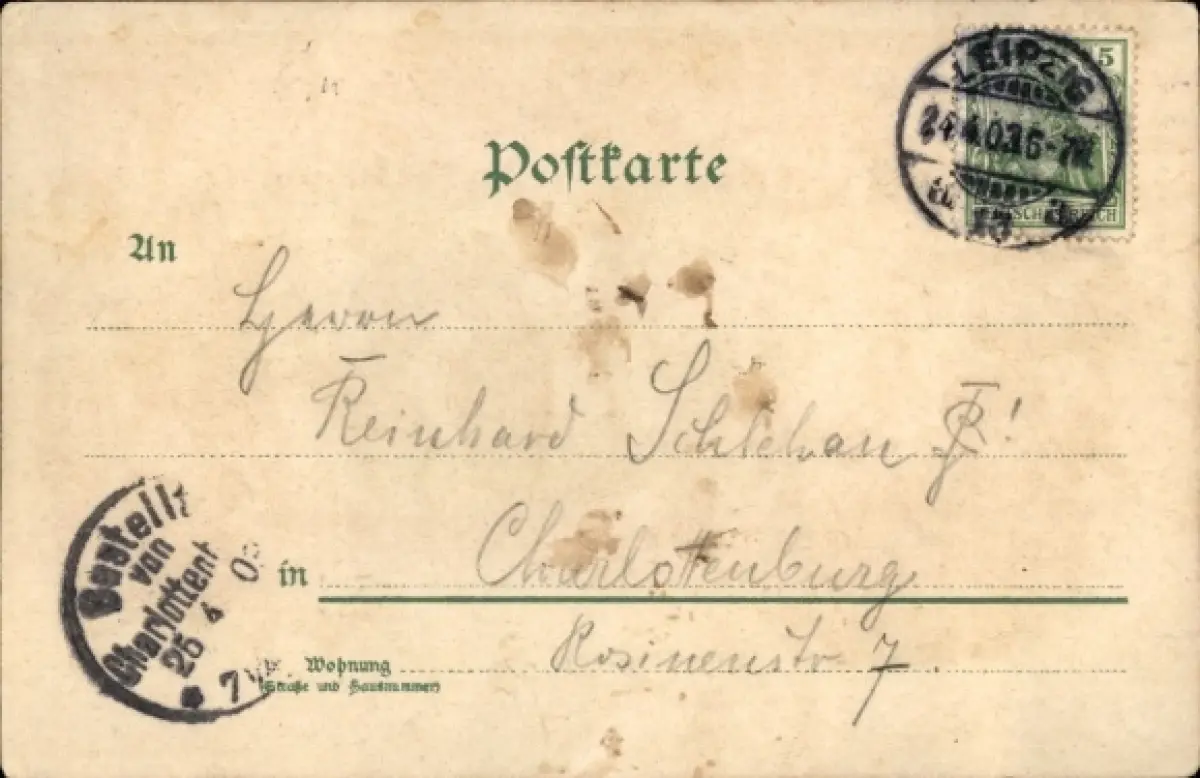 Postkarte
LEIPZIG
5
24.4.03.6-7N.
13
An
Herrn
Reinhard
Charlottenburg
in
Rosinenstr 7.
Wohnung
(Straße und Hausnummer)
Bestellt
von
Charlottenb
25 4 03
7